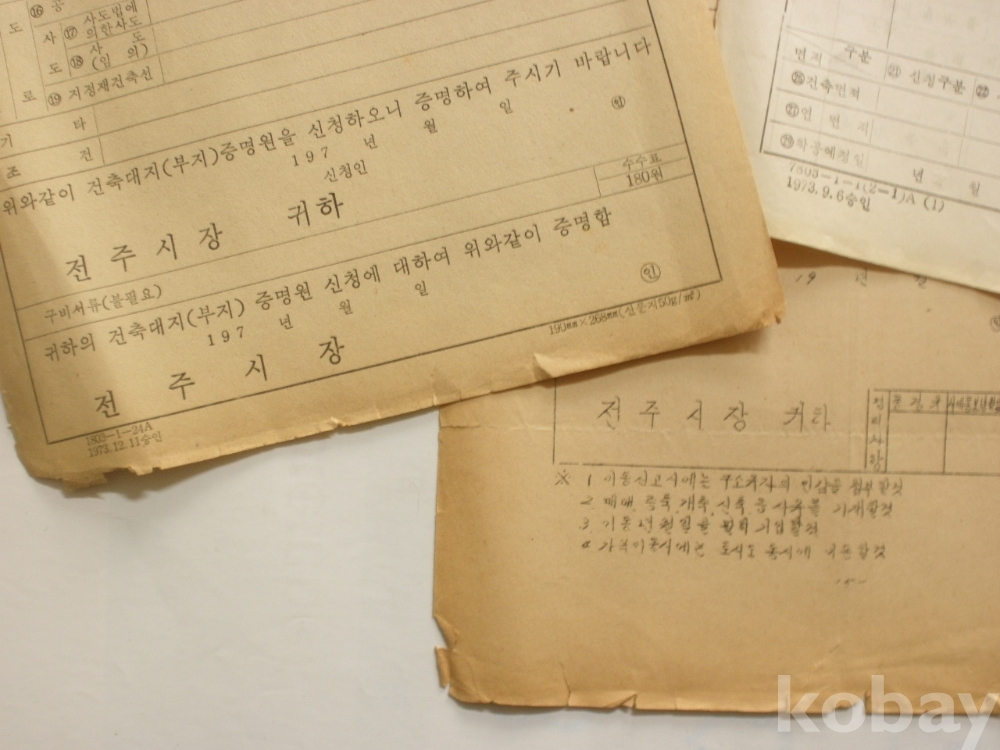 ⑯ 공
도
사 ⑰ 사도법에 의한사도
도 ⑱ 사 도 (임 의)
로 ⑲ 지정재건축선
기 타
조 건
위와같이 건축대지(부지)증명원을 신청하오니 증명하여 주시기 바랍니다
197 년 월 일
신청인 ㊞
전 주 시 장 귀하
수수료
180원
구비서류(불필요)
귀하의 건축대지(부지) 증명원 신청에 대하여 위와같이 증명함
197 년 월 일
전 주 시 장 ㊞
1803-1-24A
1973.12.11승인
190mm×268mm(신문지50g/㎡)
면지 구분 ㉑ 신청구분 ㉒
건축면적
㉗연 면 적
착공예정일
년 월
1973.9.6승인
19 년 월
전 주 시 장 귀하
※ 1 이동신고시에는 인감을 첨부할것
2 매매, 증축, 개축, 신축 등 사유를 기재할것
3 기입할것
4 가옥이동시에는 동시에
kobay